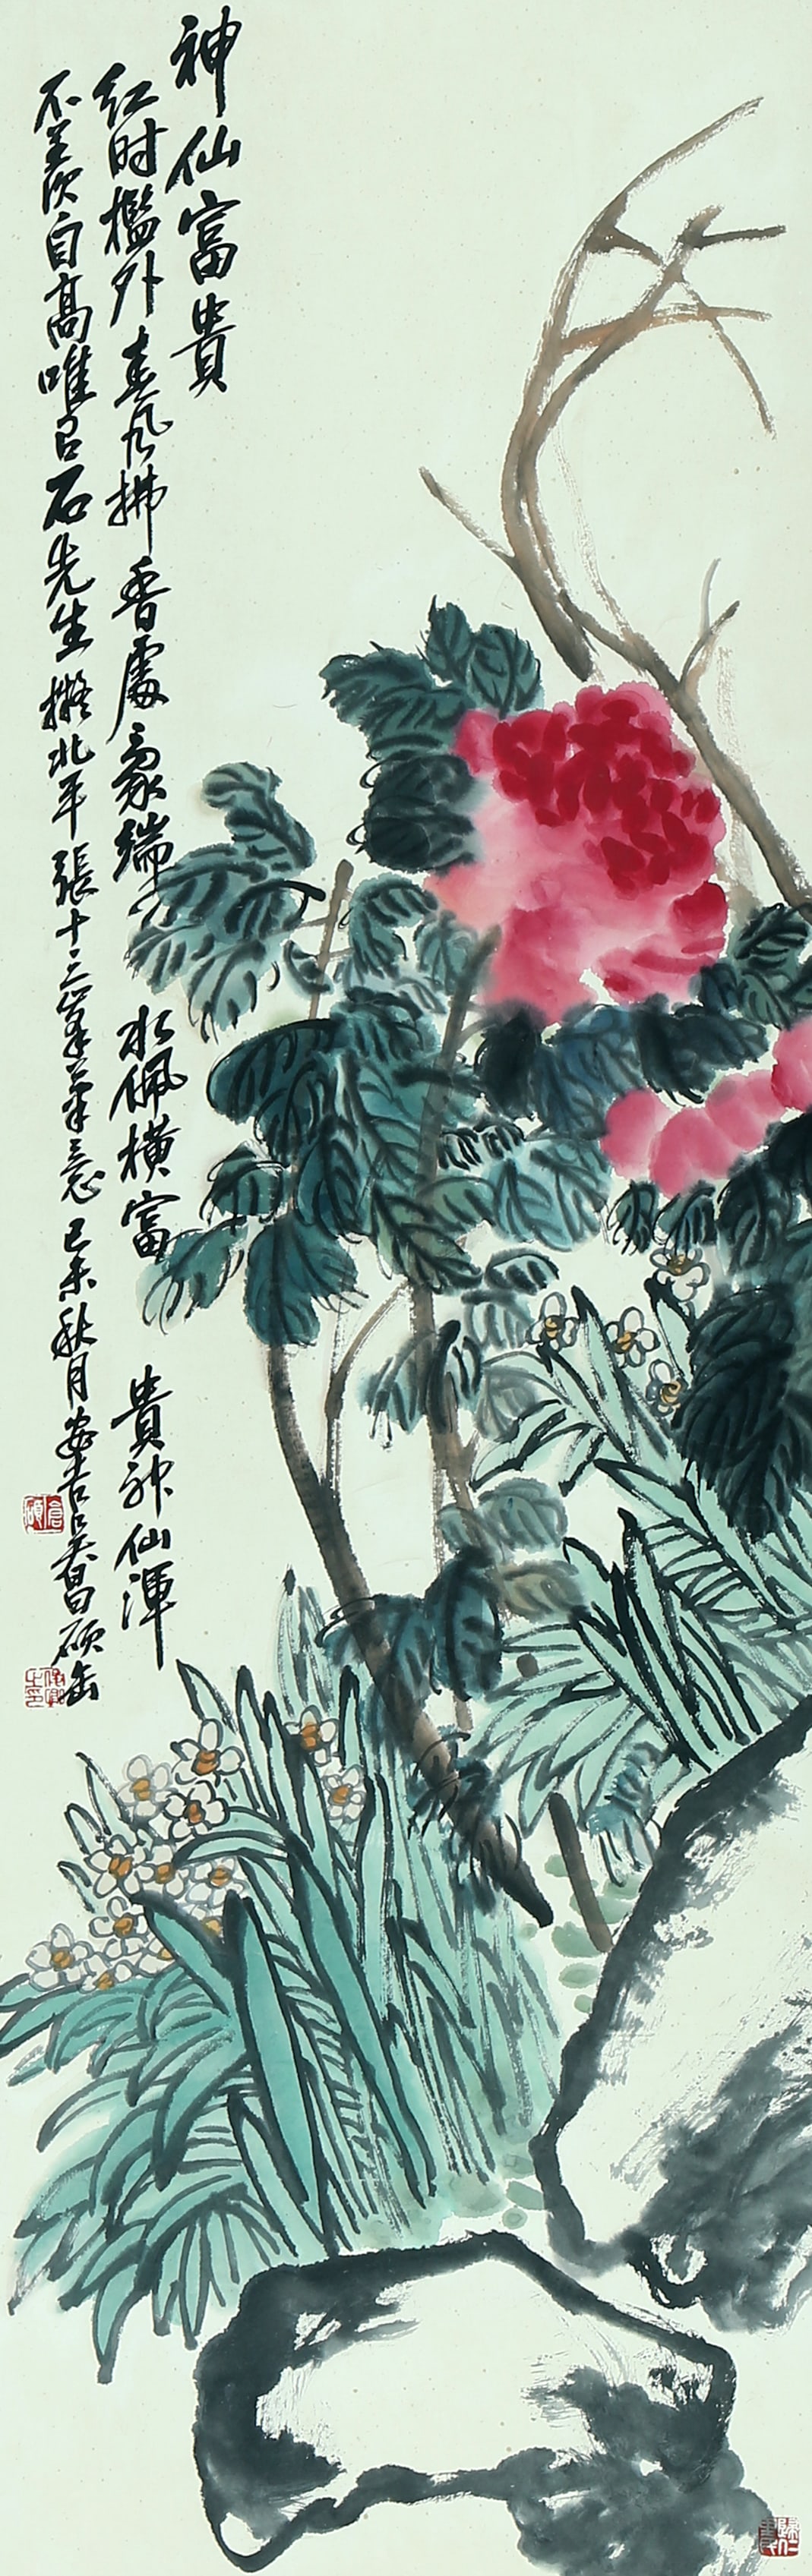 神仙富貴
红时槛外春风拂香處豪端水佩横富貴神仙渾
不羡自高唯石先生擬北平張十三峯筆意己未秋月安吉吴昌碩缶